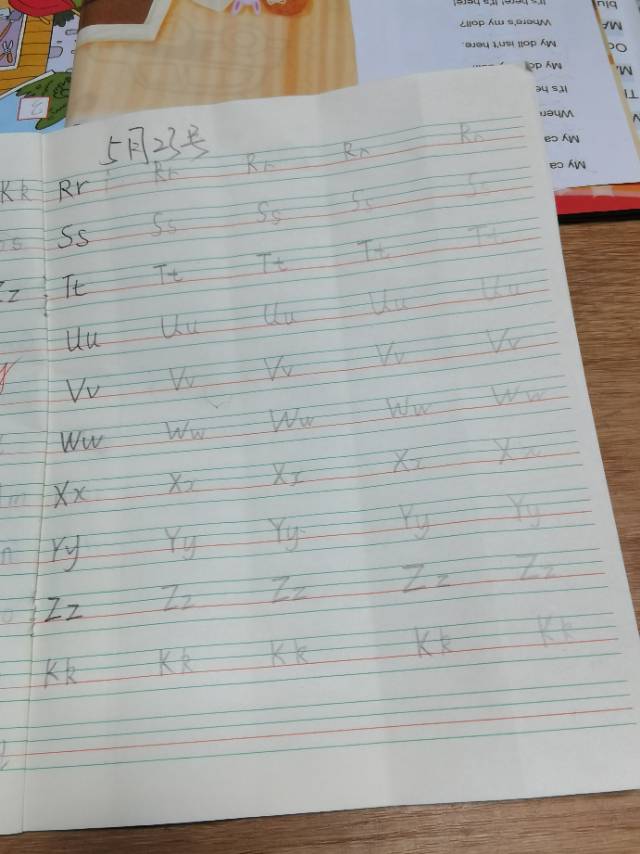 5月23号
Rr Rr Rr Rr Rr
Ss Ss Ss Ss Ss
Tt Tt Tt Tt Tt
Uu Uu Uu Uu Uu
Vv Vv Vv Vv Vv
Ww Ww Ww Ww Ww
Xx Xx Xx Xx Xx
Yy Yy Yy Yy Yy
Zz Zz Zz Zz Zz
Kk Kk Kk Kk Kk
Kk
My ca
My ca
Wher
It's he
My doll isn't here.
Where's my doll?
It's here! It's here!